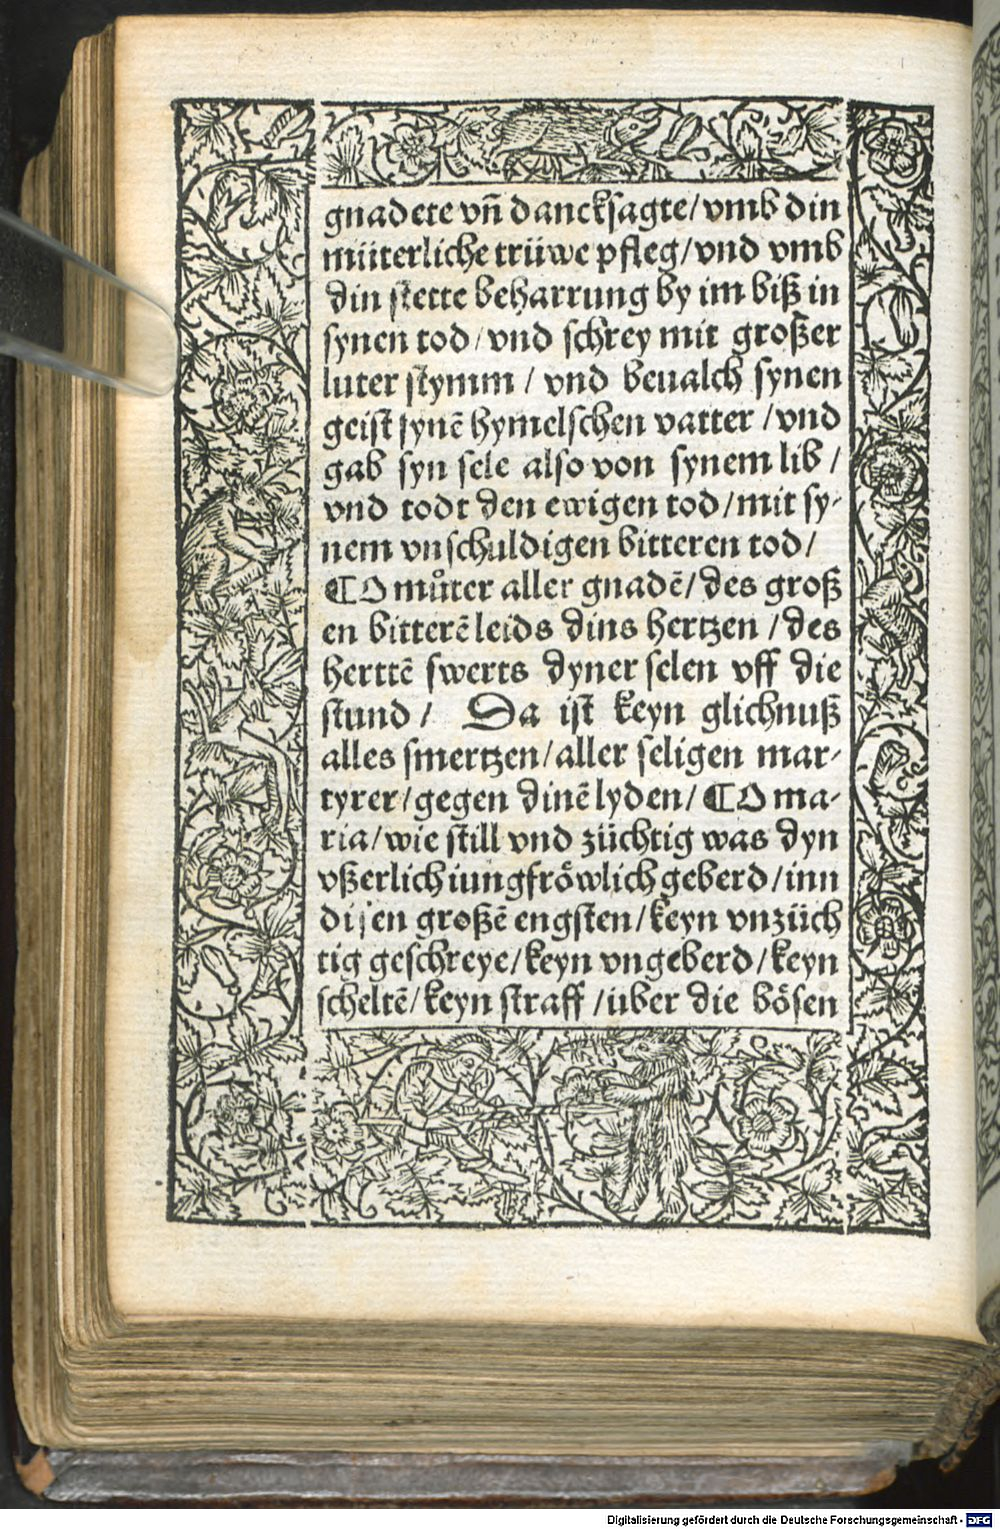 gnadete vn̄ dancksagte/vmb din
müterliche trüwe pfleg/vnd vmb
din stette beharrung by im biß in
synen tod/vnd schrey mit großer
luter stymm / vnd beualch synen
geist synē hymelschen vatter /vnd
gab syn sele also von synem lib /
vnd todt den ewigen tod/mit sy-
nem vnschuldigen bitteren tod/
¶O můter aller gnadē/des groß
en bitterē leids dins hertzen /des
herttē swerts dyner selen vff die
stund / Da ist keyn glichnuß
alles smertzen/aller seligen mar-
tyrer/gegen dinē lyden/ ¶O ma-
ria/wie still vnd züchtig was dyn
vßerlich iungfröwlich geberd/inn
disen großē engsten/keyn vnzüch
tig geschreye/keyn vngeberd/keyn
scheltē/keyn straff /über die bösen
Digitalisierung gefördert durch die Deutsche Forschungsgemeinschaft - DFG